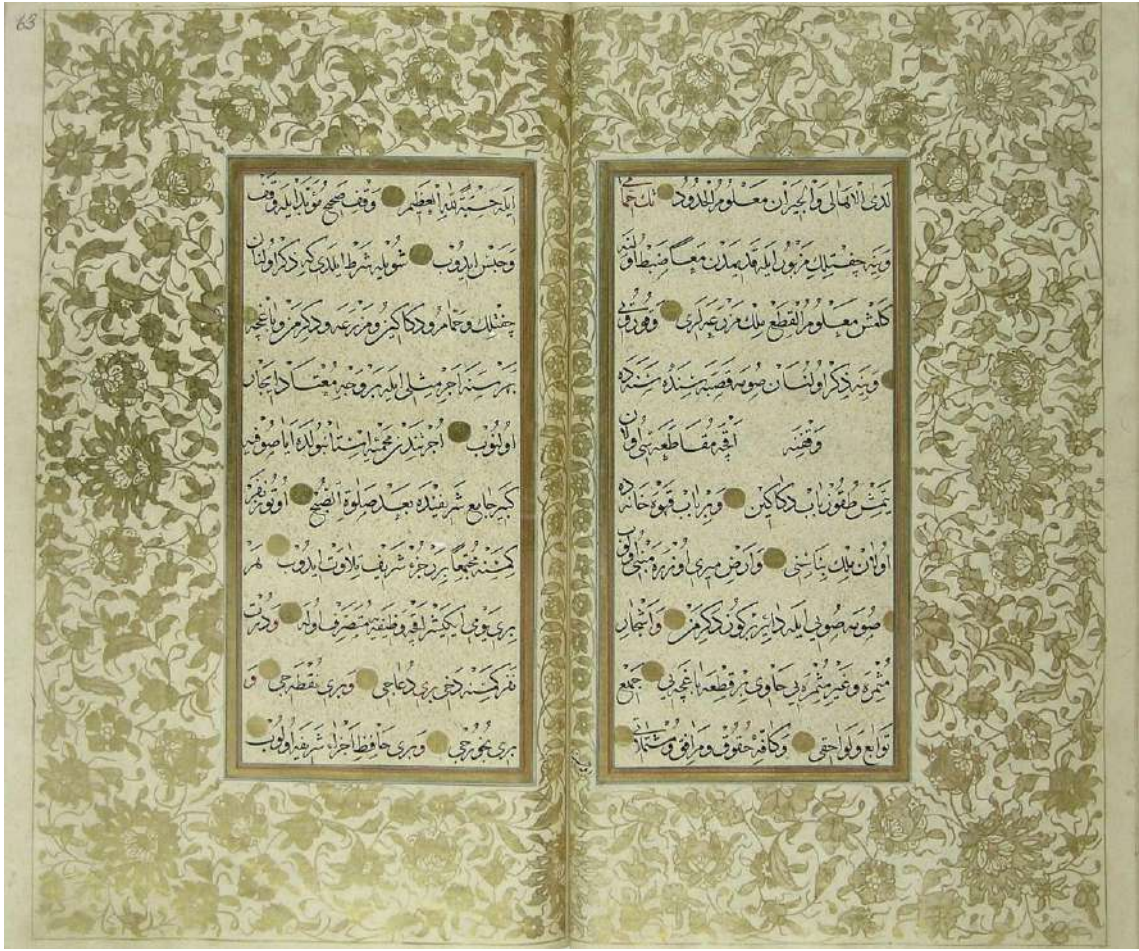 لدى الاهالى والجيران معلوم الحدود تك حمامى
وينه چفتلك مزبور ايله قديمدن معا ضبط اولنه
كلمش معلوم القطع ملك مزرعه لرى
وينه ذكر اولنان صوبه قصبه سنده سنده
وقفنه اقچه مقاطعه سى اولان
يتمش طقوز باب دكاكين وبر باب قهوه خانه ده
اولان ملك بناسنى وارض ميرى اوزره مبنى اولوب
صوبه صويى ايله دائر كوز دكرمن واشجار
مثمره وغير مثمره يى حاوى بر قطعه باغچه يى جميع
توابع ولواحقى وكافه حقوق ومرافق ومشتملاتى
63
ايله حسبة لله العظيم وقف صحيح مؤبد ايله وقف
وحبس ايدوب شويله شرط ايلدى كه ذكر اولنان
چفتلك وحمام ودكاكين ومزرعه ودكرمن وباغچه
بهر سنه اجر مثلى ايله بر وجه معتاد ايجار
اولنوب اجرتندن محميه استانبولده اياصوفيه
كبير جامع شريفنده بعد صلوة الصبح اوتوز نفر
كمسنه مجتمعا برر جزء شريف تلاوت ايدوب هر
برى يومى ايكيشر اقچه وظيفه متصرف اوله ودرت
نفر كمسنه دخى برى دعاجى وبرى نقطه جى و
برى بخورجى وبرى حافظ اجزاء شريفه اولوب